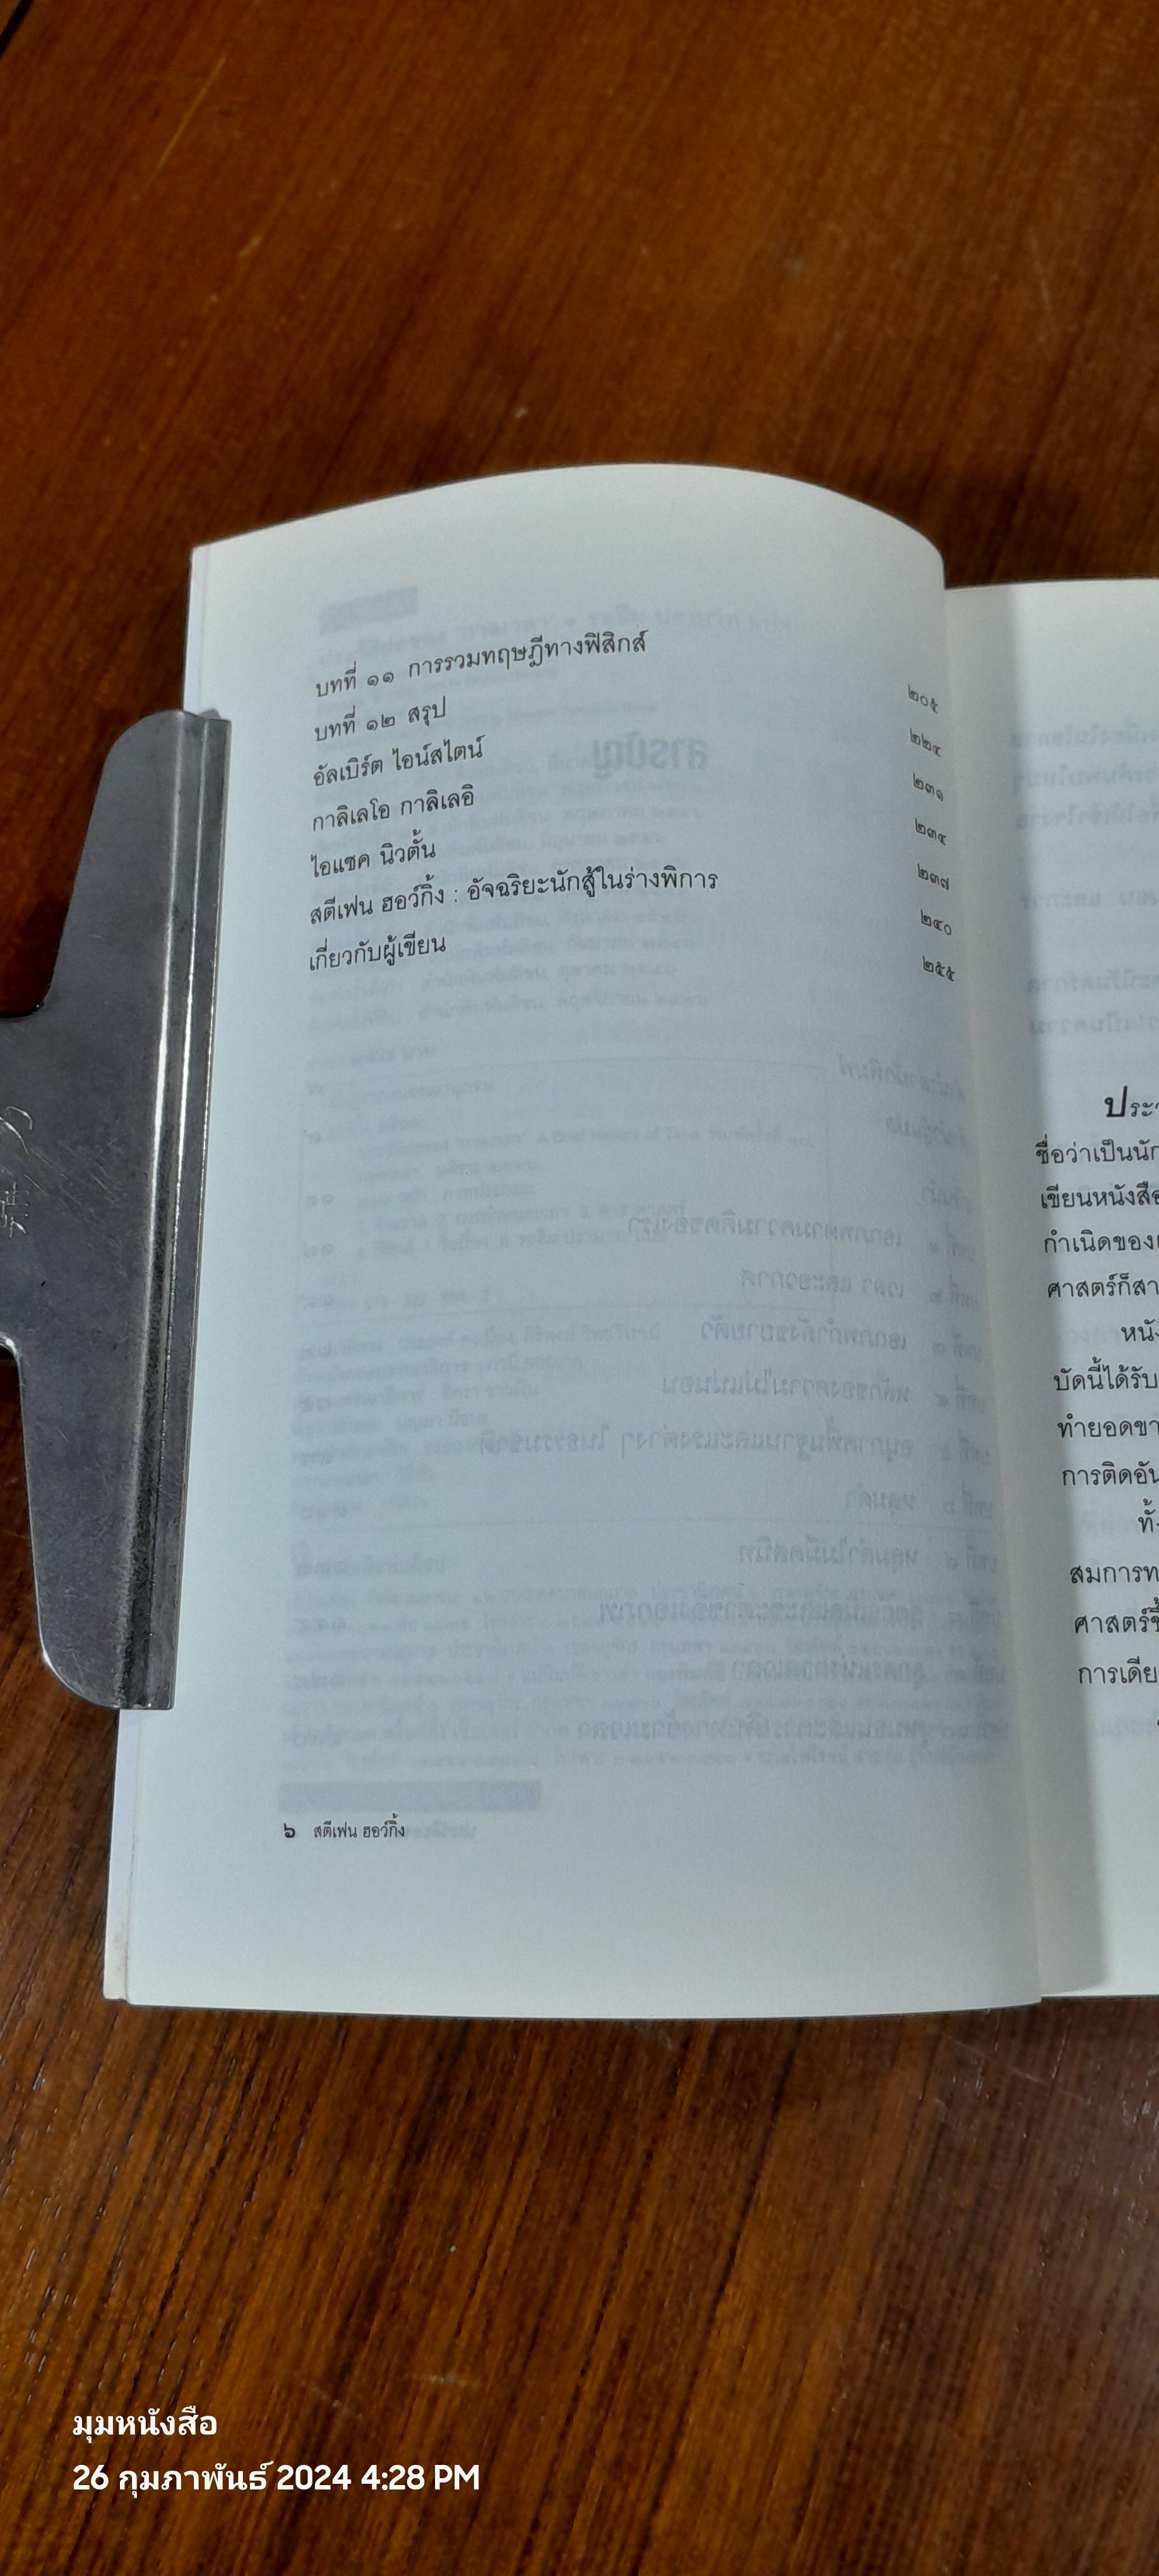 บทที่ ๑๑ การรวมทฤษฎีทางฟิสิกส์ ๒๐๕
บทที่ ๑๒ สรุป ๒๒๔
อัลเบิร์ต ไอน์สไตน์ ๒๓๑
กาลิเลโอ กาลิเลอิ ๒๓๔
ไอแซค นิวตั้น ๒๓๗
สตีเฟน ฮอว์กิ้ง : อัจฉริยะนักสู้ในร่างพิการ ๒๔๐
เกี่ยวกับผู้เขียน ๒๕๕
๖ สตีเฟน ฮอว์กิ้ง
ชื่อว่าเป็นนัก
เขียนหนังสือ
กำเนิดของ
ศาสตร์ก็สา
หนัง
บัดนี้ได้รับ
ทำยอดขา
การติดอัน
ทั้ง
สมการท
ศาสตร์ขึ้
การเดีย
มุมหนังสือ
26 กุมภาพันธ์ 2024 4:28 PM